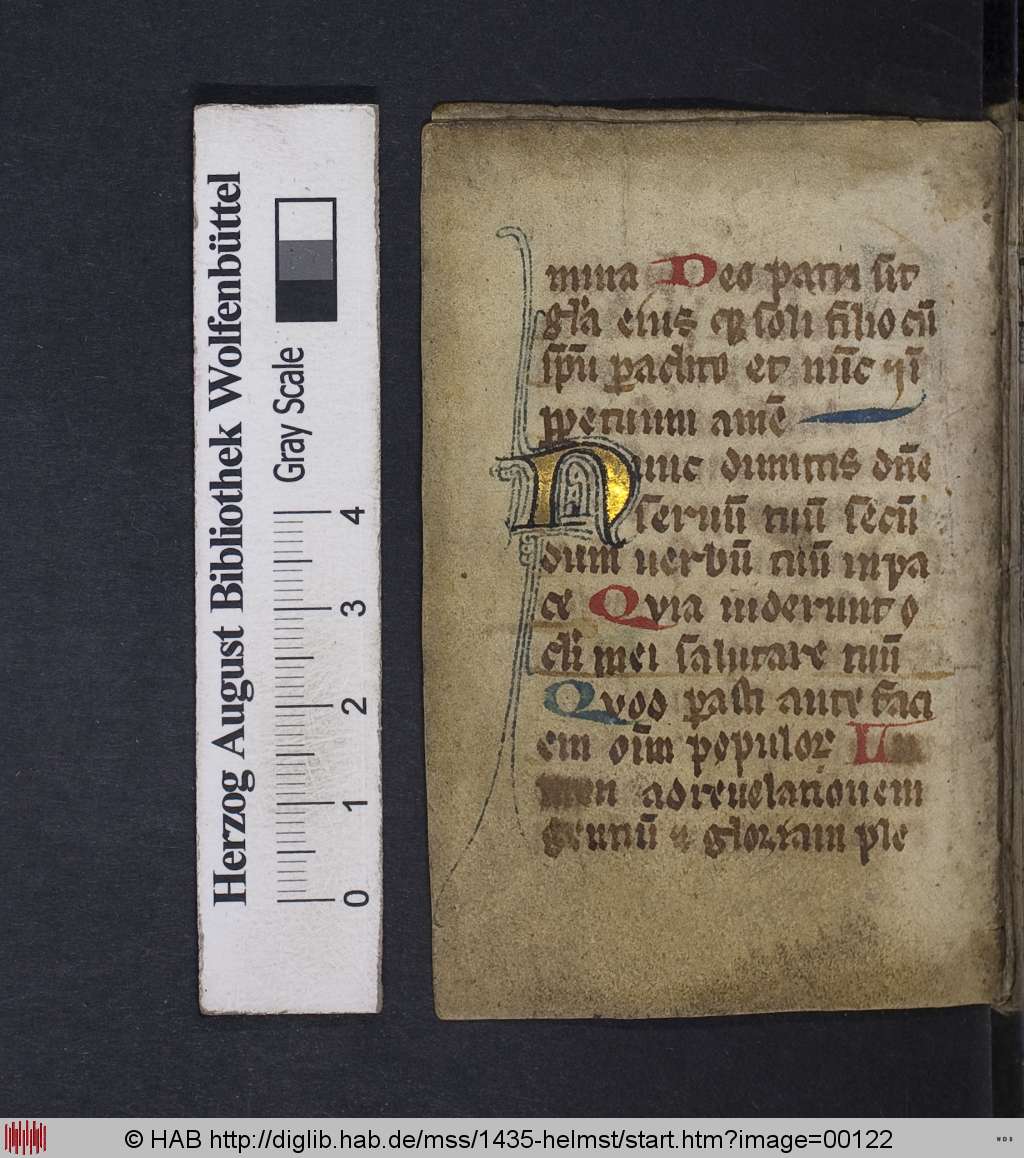 Herzog August Bibliothek Wolfenbüttel
Gray Scale
0 1 2 3 4
mina Deo patri sit
gl̄a eius qꝫ soli filio cū
sp̄u ꝑaclito et nūc ⁊ ī
ꝑpetuum amē
Nunc dimittis dn̄e
seruū tuū secū
dum uerbū tuū in pa
ce Quia uiderunt o
cl̄i mei salutare tuū
Quod ꝑasti ante faci
em oīm populoꝝ Lu
men ad reuelationem
gentiū ⁊ gloriam ple
© HAB http://diglib.hab.de/mss/1435-helmst/start.htm?image=00122